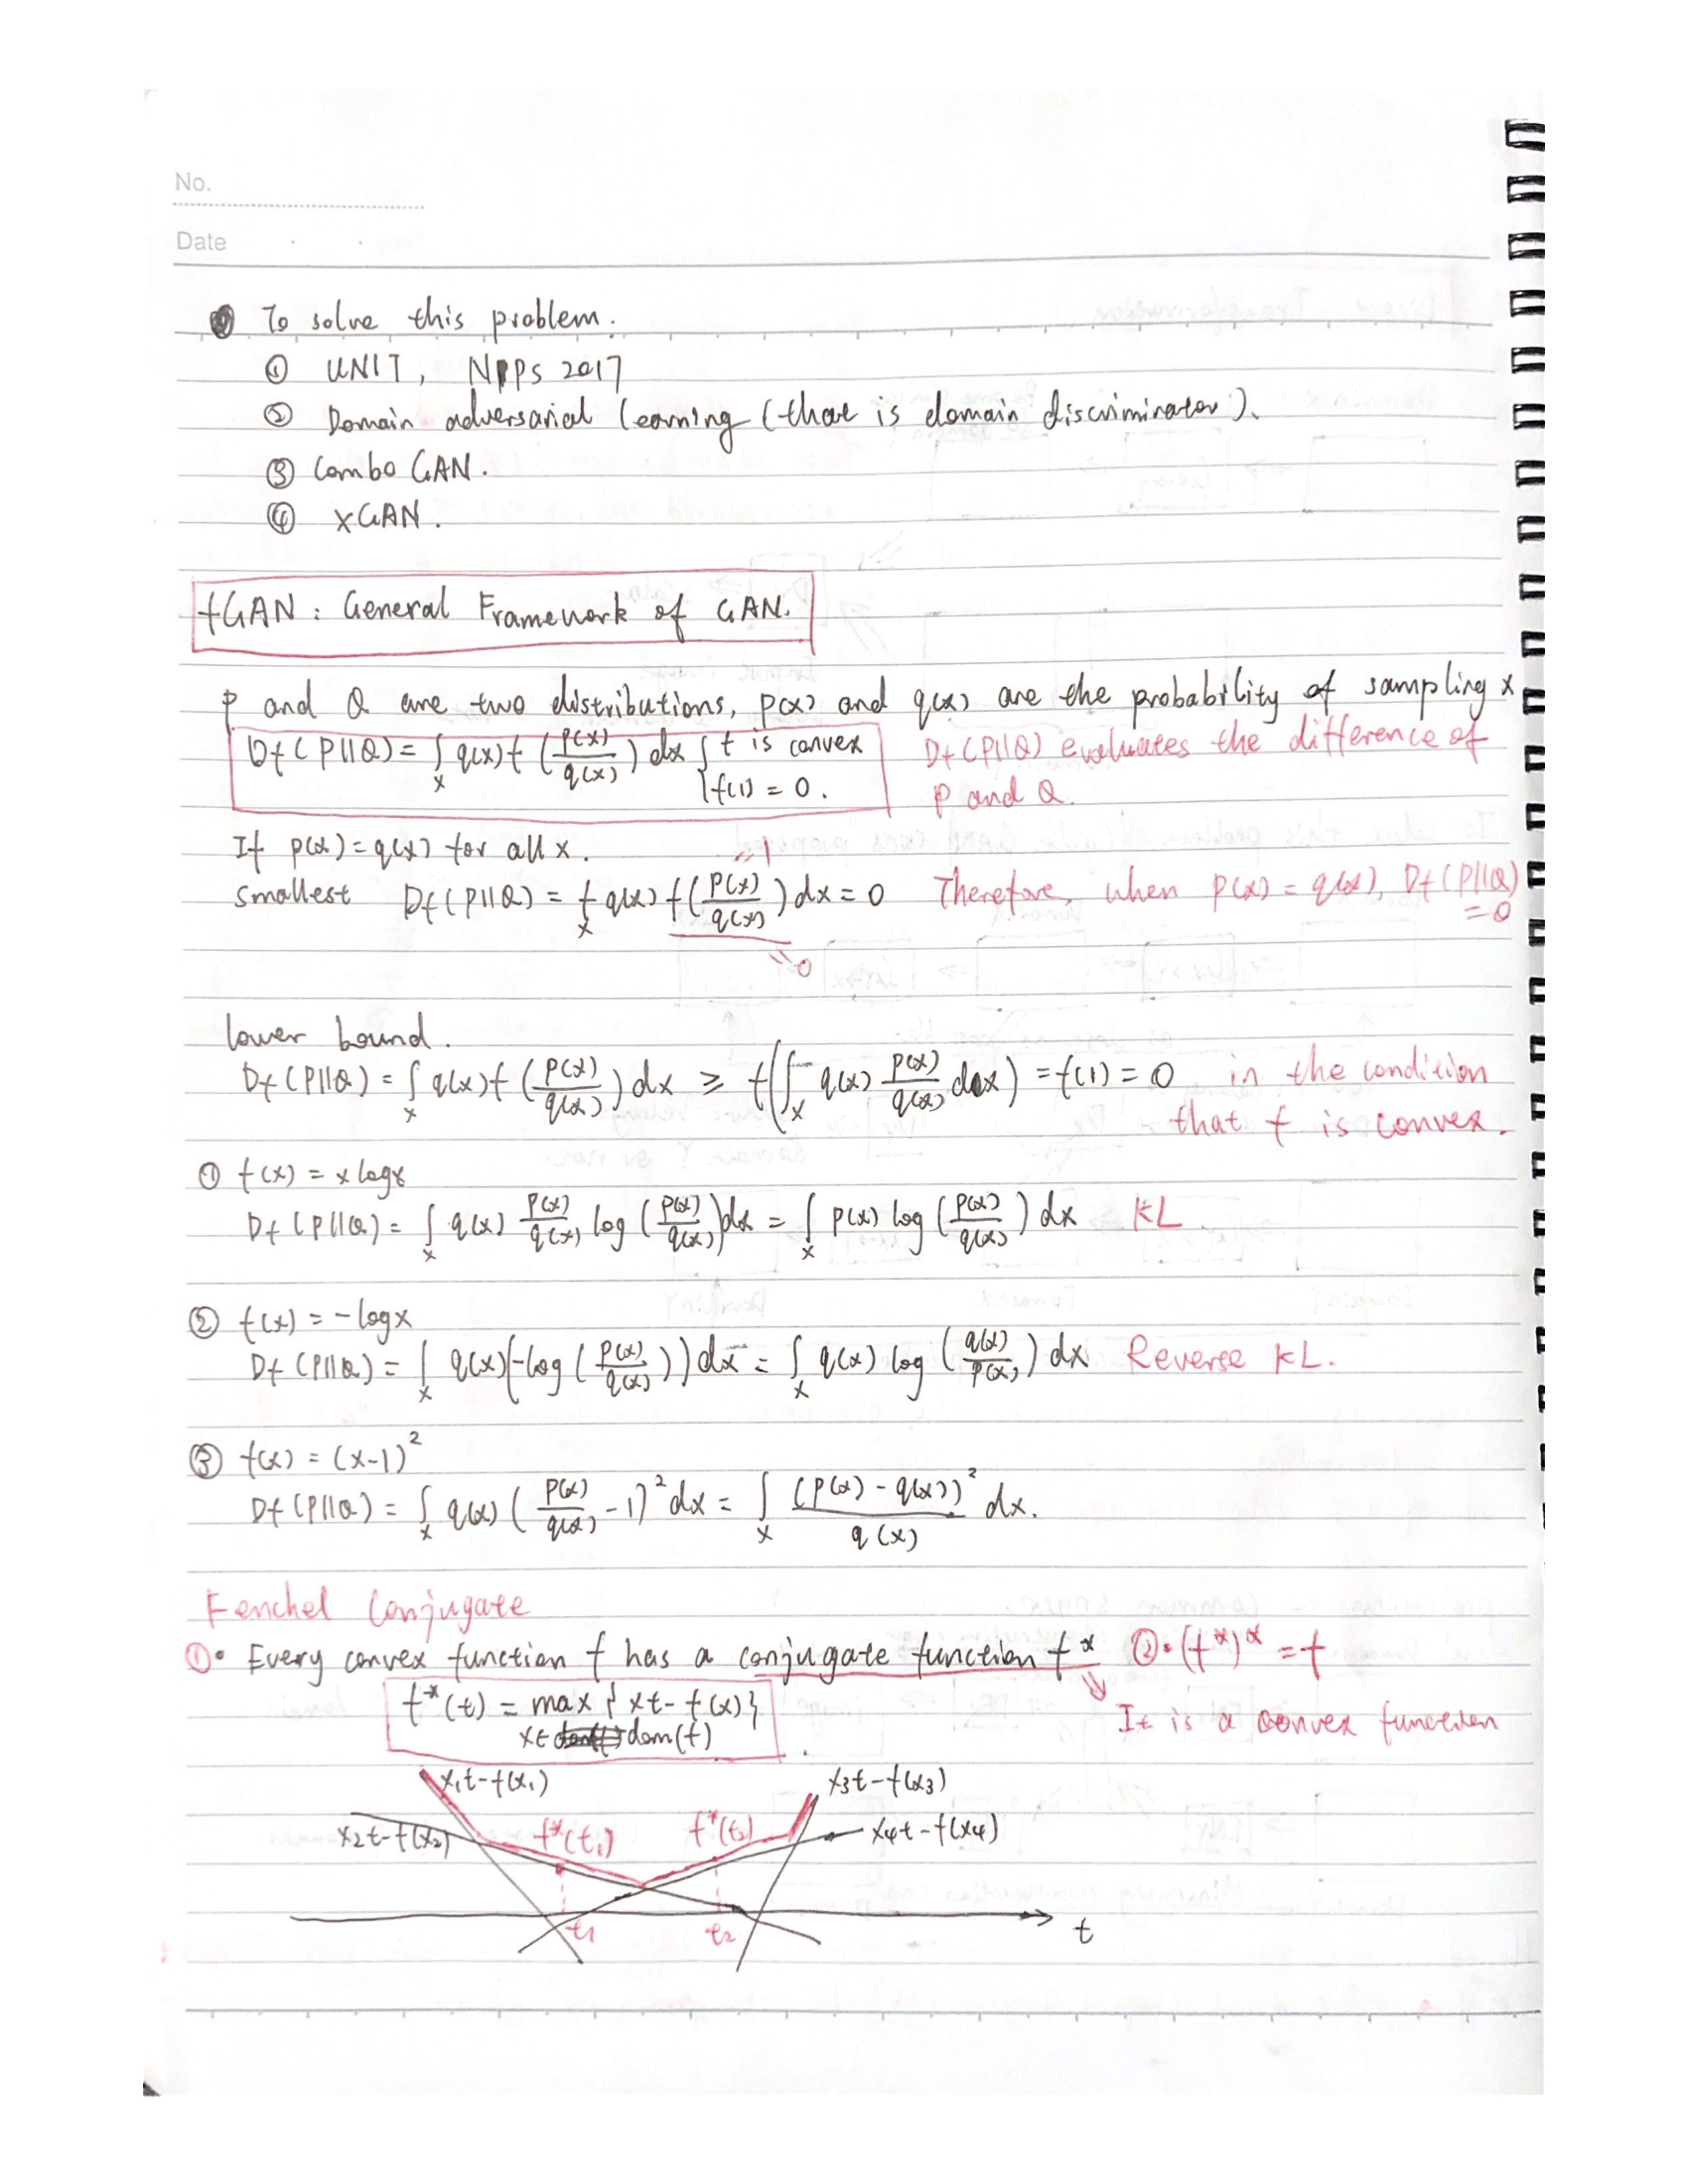 No.
Date
To solve this problem.
① UNIT, NIPS 2017
② Domain adversarial learning (that is domain discriminator).
③ Combo GAN.
④ XGAN.
fGAN: General Framework of GAN.
P and Q are two distributions, p(x) and q(x) are the probability of sampling x
Df(P||Q) = ∫x q(x) f(p(x)/q(x)) dx { f is convex
f(1) = 0.
Df(P||Q) evaluates the difference of
P and Q.
If p(x) = q(x) for all x.
=1
smallest Df(P||Q) = ∫x q(x) f(p(x)/q(x)) dx = 0 Therefore, when p(x) = q(x), Df(P||Q)
= 0
= 0
lower bound.
Df(P||Q) = ∫x q(x) f(p(x)/q(x)) dx ≥ f(∫x q(x) p(x)/q(x) dx) = f(1) = 0 in the condition
that f is convex.
① f(x) = x log x
Df(P||Q) = ∫x q(x) p(x)/q(x) log(p(x)/q(x)) dx = ∫x p(x) log(p(x)/q(x)) dx KL.
② f(x) = -log x
Df(P||Q) = ∫x q(x)(-log(p(x)/q(x))) dx = ∫x q(x) log(q(x)/p(x)) dx Reverse KL.
③ f(x) = (x-1)²
Df(P||Q) = ∫x q(x)(p(x)/q(x) - 1)² dx = ∫x (p(x) - q(x))²/q(x) dx.
Fenchel Conjugate
①• Every convex function f has a conjugate function f* ②•(f*)* = f
f*(t) = max { xt - f(x) }
x∈ dom(f)
It is a convex function
x₁t-f(x₁) x₃t-f(x₃)
x₂t-f(x₂) f*(t₁) f*(t₂) x₄t-f(x₄)
t₁ t₂ t